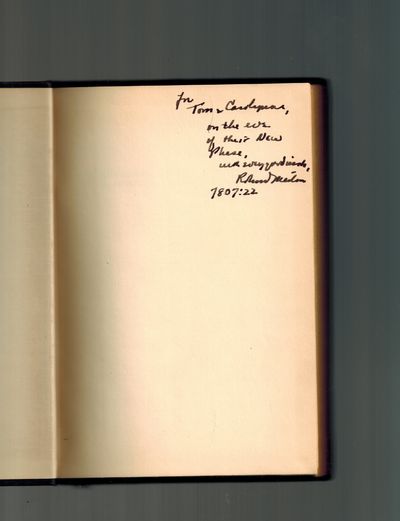 for
Tom & Carolynne,
on the eve
of their New
Phase,
with every good wish,
7807:22